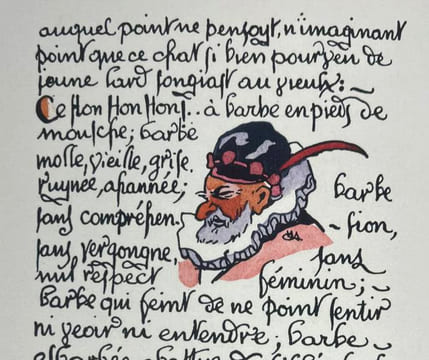 auquel point ne pensoyt, n'imaginant
point que ce chat si bien pourveu de
jeune lard songiast au vieulx: ~
Ce Hon Hon Hon!.. à barbe en pieds de
mousche; barbe
molle, vieille, grise,
ruynée, ahannée; barbe
sans compréhen- ~ sion,
sans vergongne, sans
nul respect féminin; ~
barbe qui feint de ne point sentir
ni veoir ni entendre; barbe ~